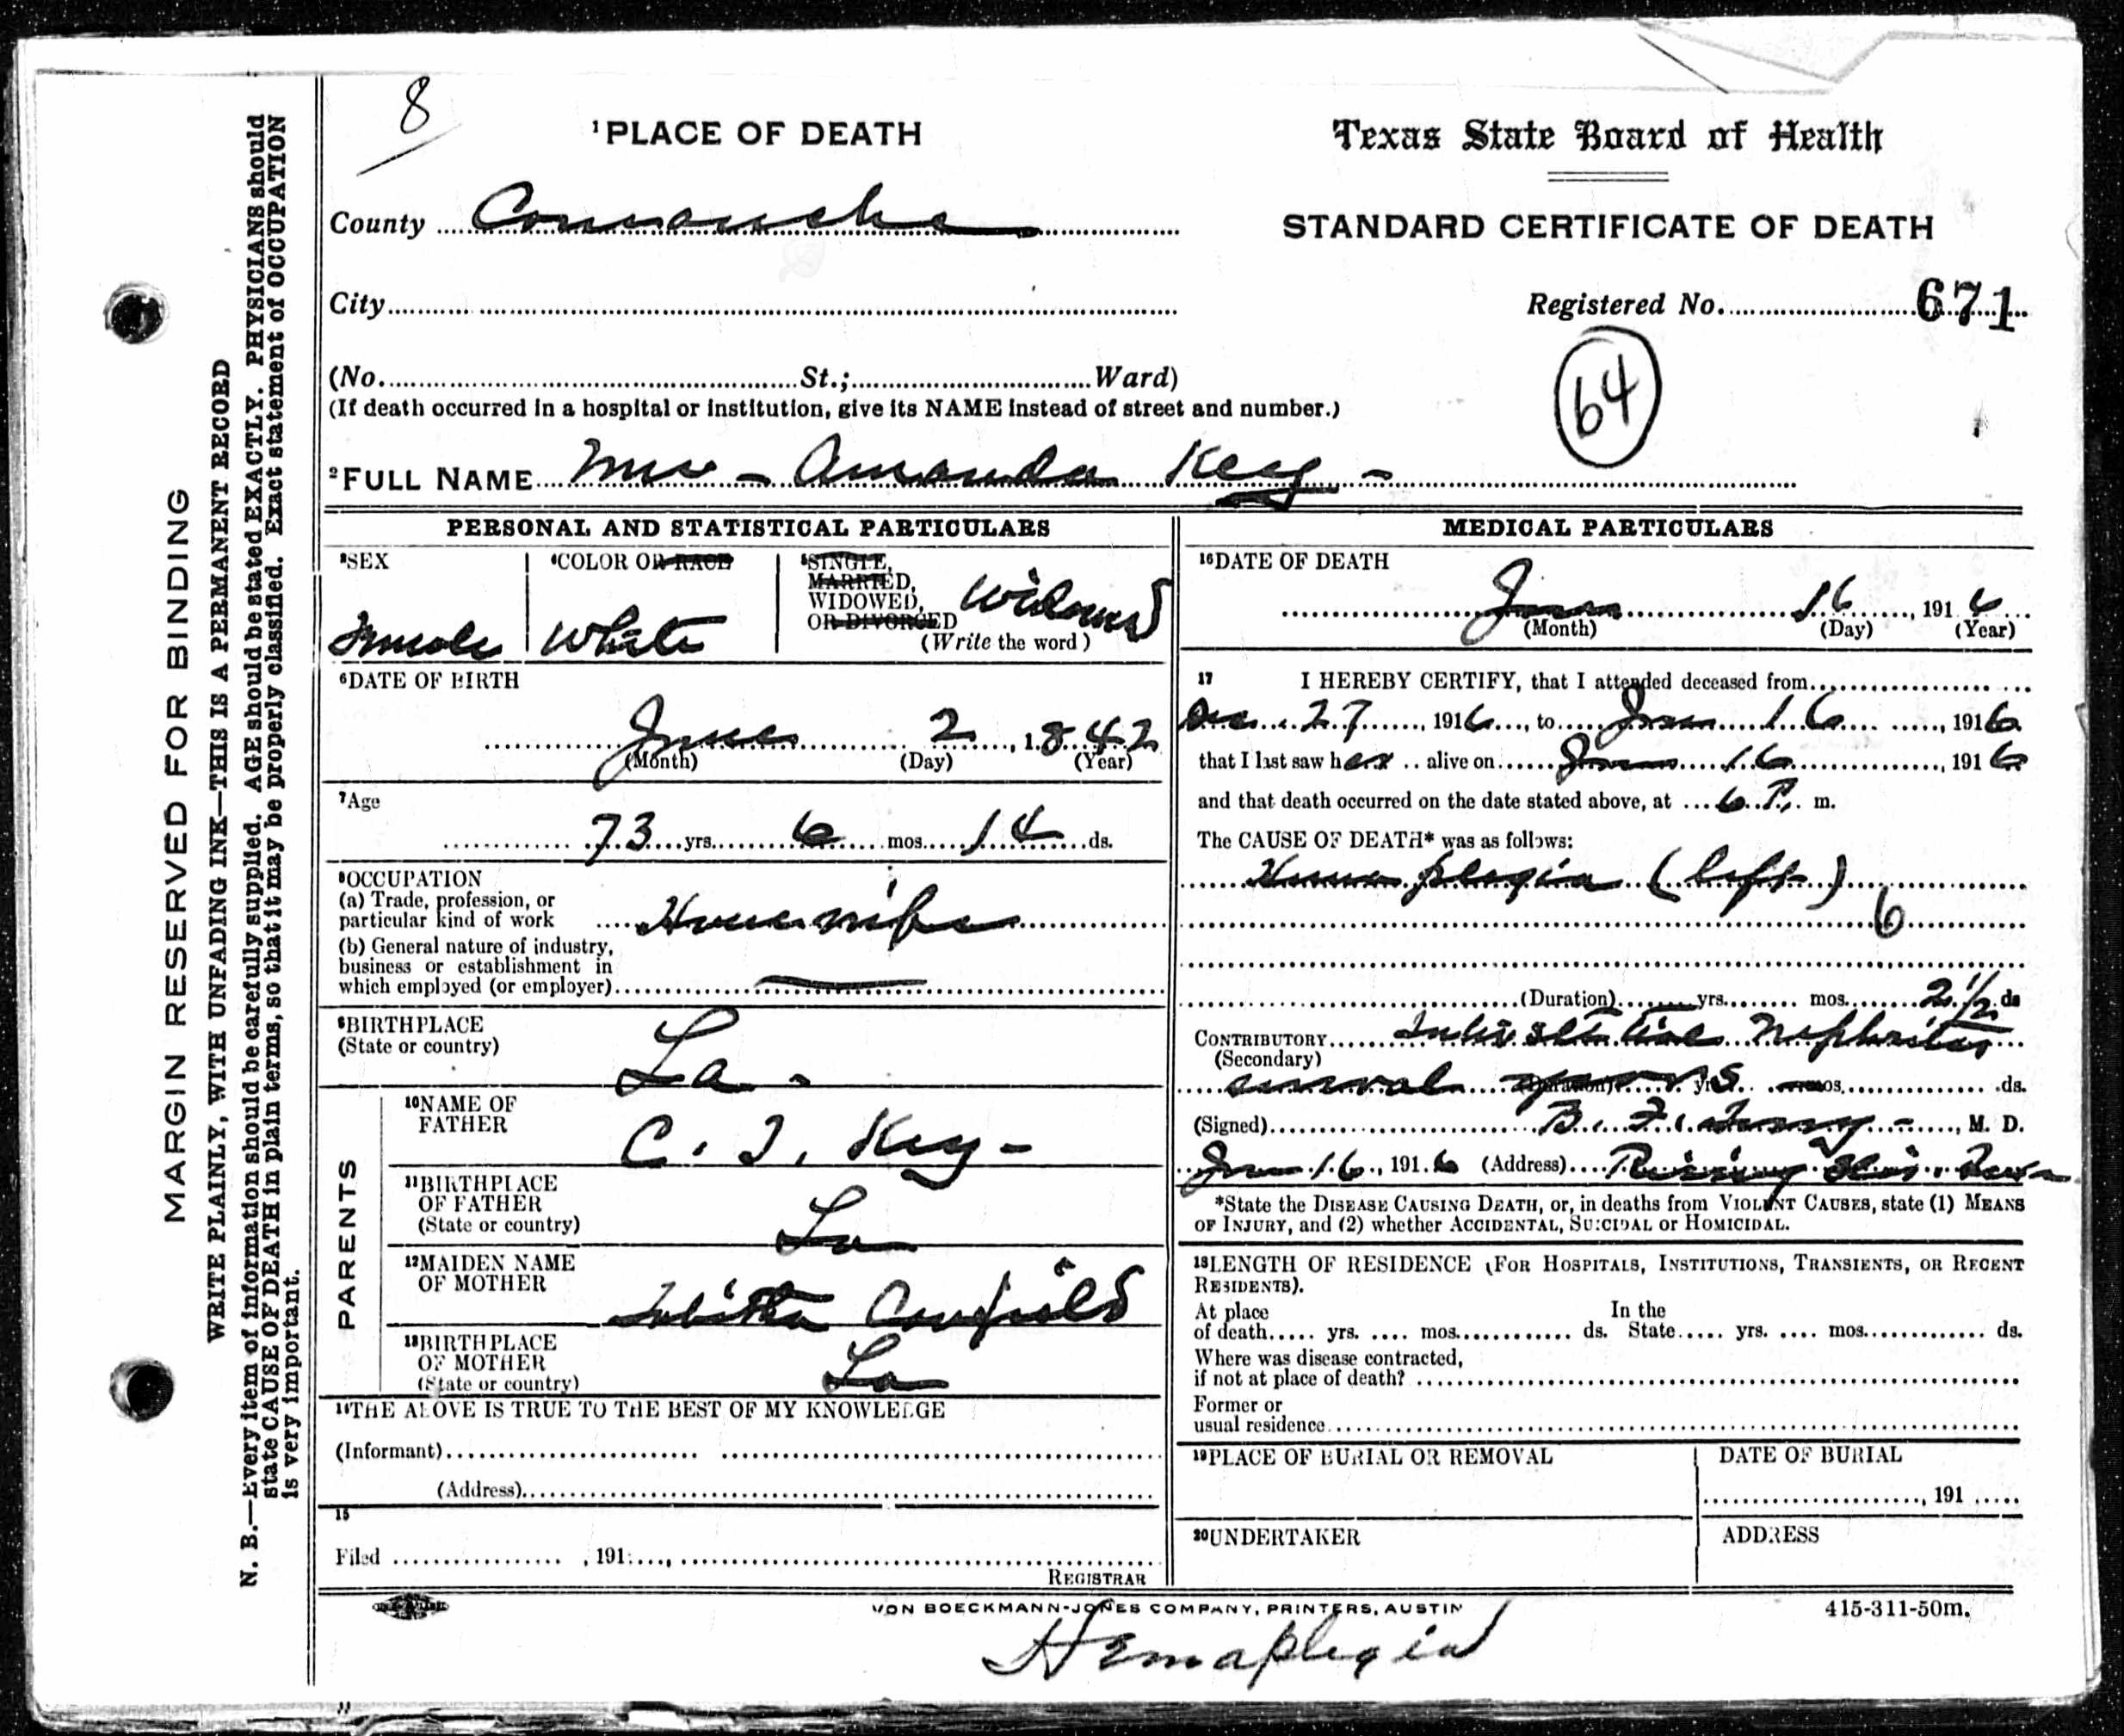 8
¹PLACE OF DEATH
Texas State Board of Health
County Comanche
STANDARD CERTIFICATE OF DEATH
City
Registered No. 671
(No. St.; Ward)
64
(If death occurred in a hospital or institution, give its NAME instead of street and number.)
²FULL NAME Mrs - Amanda Key -
PERSONAL AND STATISTICAL PARTICULARS
³SEX
Female
⁴COLOR OR RACE
White
⁵SINGLE,
MARRIED,
WIDOWED,
OR DIVORCED
(Write the word)
Widowed
⁶DATE OF BIRTH
June 2, 1842
(Month) (Day) (Year)
⁷Age
73 yrs. 6 mos. 14 ds.
⁸OCCUPATION
(a) Trade, profession, or
particular kind of work Housewife
(b) General nature of industry,
business or establishment in
which employed (or employer)
⁹BIRTHPLACE
(State or country)
La.
PARENTS
¹⁰NAME OF
FATHER
C. T. Key -
¹¹BIRTHPLACE
OF FATHER
(State or country)
La
¹²MAIDEN NAME
OF MOTHER
¹³BIRTHPLACE
OF MOTHER
(State or country)
La
¹⁴THE ABOVE IS TRUE TO THE BEST OF MY KNOWLEDGE
(Informant)
(Address)
15
Filed , 191
REGISTRAR
MEDICAL PARTICULARS
¹⁶DATE OF DEATH
16, 1916
(Month) (Day) (Year)
17 I HEREBY CERTIFY, that I attended deceased from
Dec. 27, 1916, to 16, 1916
that I last saw her alive on 16, 1916
and that death occurred on the date stated above, at 6 P. m.
The CAUSE OF DEATH* was as follows:
plegia (left)
6
(Duration) yrs. mos. 2 1/2 ds
CONTRIBUTORY Nephritis
(Secondary)
several years (Duration) yrs. mos. ds.
(Signed) B. F. , M. D.
16, 1916 (Address) Rising Star, Texas
*State the DISEASE CAUSING DEATH, or, in deaths from VIOLENT CAUSES, state (1) MEANS
OF INJURY, and (2) whether ACCIDENTAL, SUICIDAL or HOMICIDAL.
¹⁸LENGTH OF RESIDENCE (FOR HOSPITALS, INSTITUTIONS, TRANSIENTS, OR RECENT
RESIDENTS).
At place In the
of death yrs. mos. ds. State yrs. mos. ds.
Where was disease contracted,
if not at place of death?
Former or
usual residence
¹⁹PLACE OF BURIAL OR REMOVAL
DATE OF BURIAL
, 191
²⁰UNDERTAKER
ADDRESS
VON BOECKMANN-JONES COMPANY, PRINTERS, AUSTIN
415-311-50m.
Hemaplegia
MARGIN RESERVED FOR BINDING
WRITE PLAINLY, WITH UNFADING INK—THIS IS A PERMANENT RECORD
N. B.—Every item of information should be carefully supplied. AGE should be stated EXACTLY. PHYSICIANS should
state CAUSE OF DEATH in plain terms, so that it may be properly classified. Exact statement of OCCUPATION
is very important.